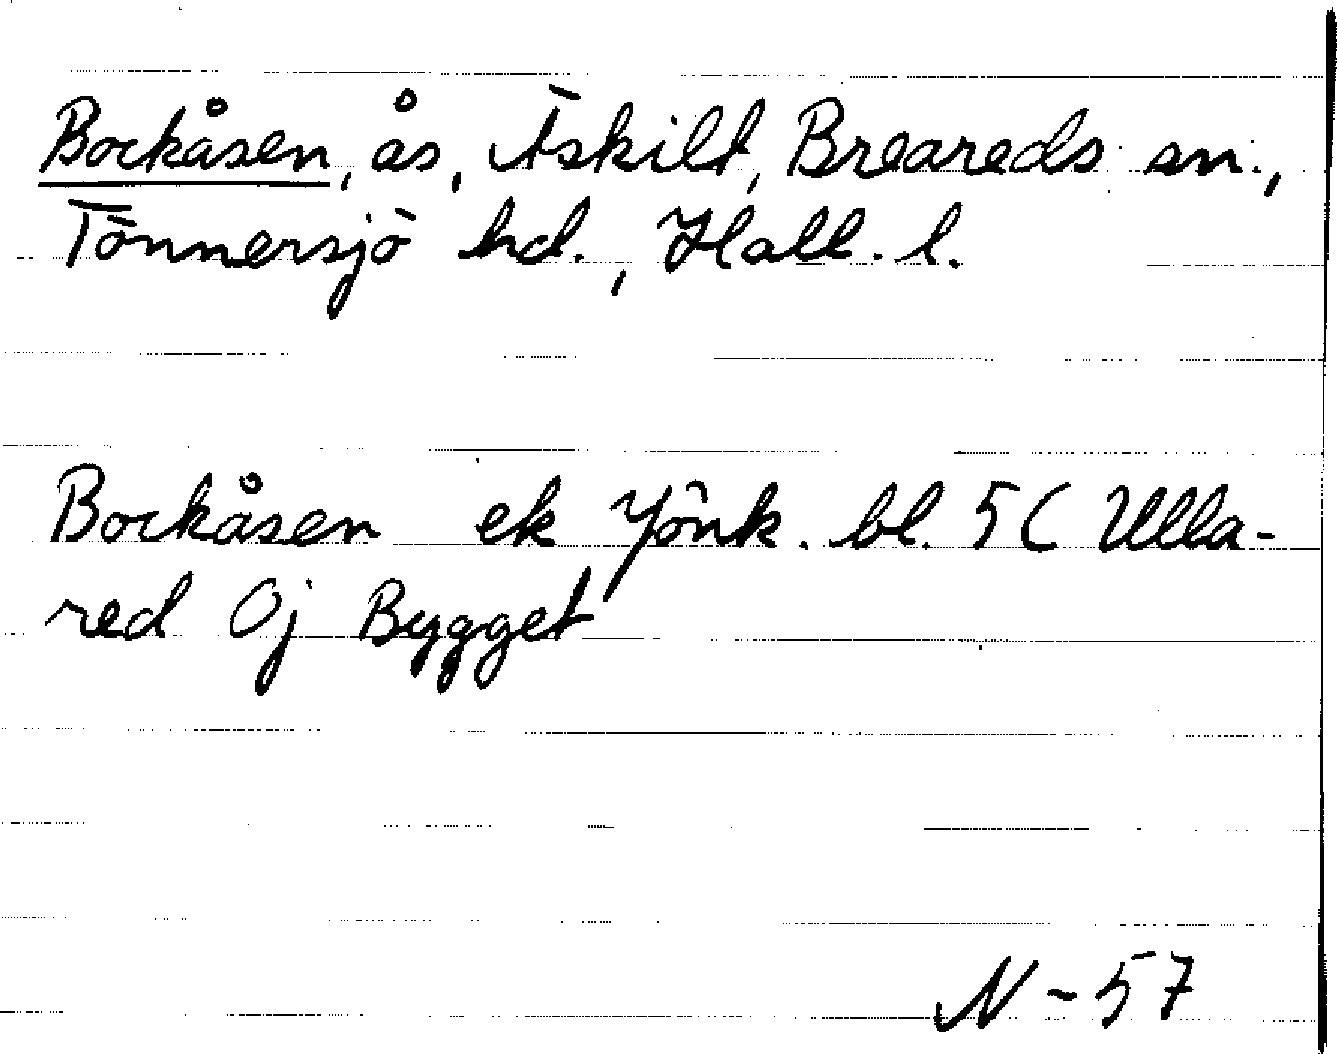 Bockåsen, ås, Äskilt, Breareds sn.,
Tönnersjö hd., Hall. l.
Bockåsen ek Jönk. bl. 5C Ulla-
red Oj Bygget
N-57